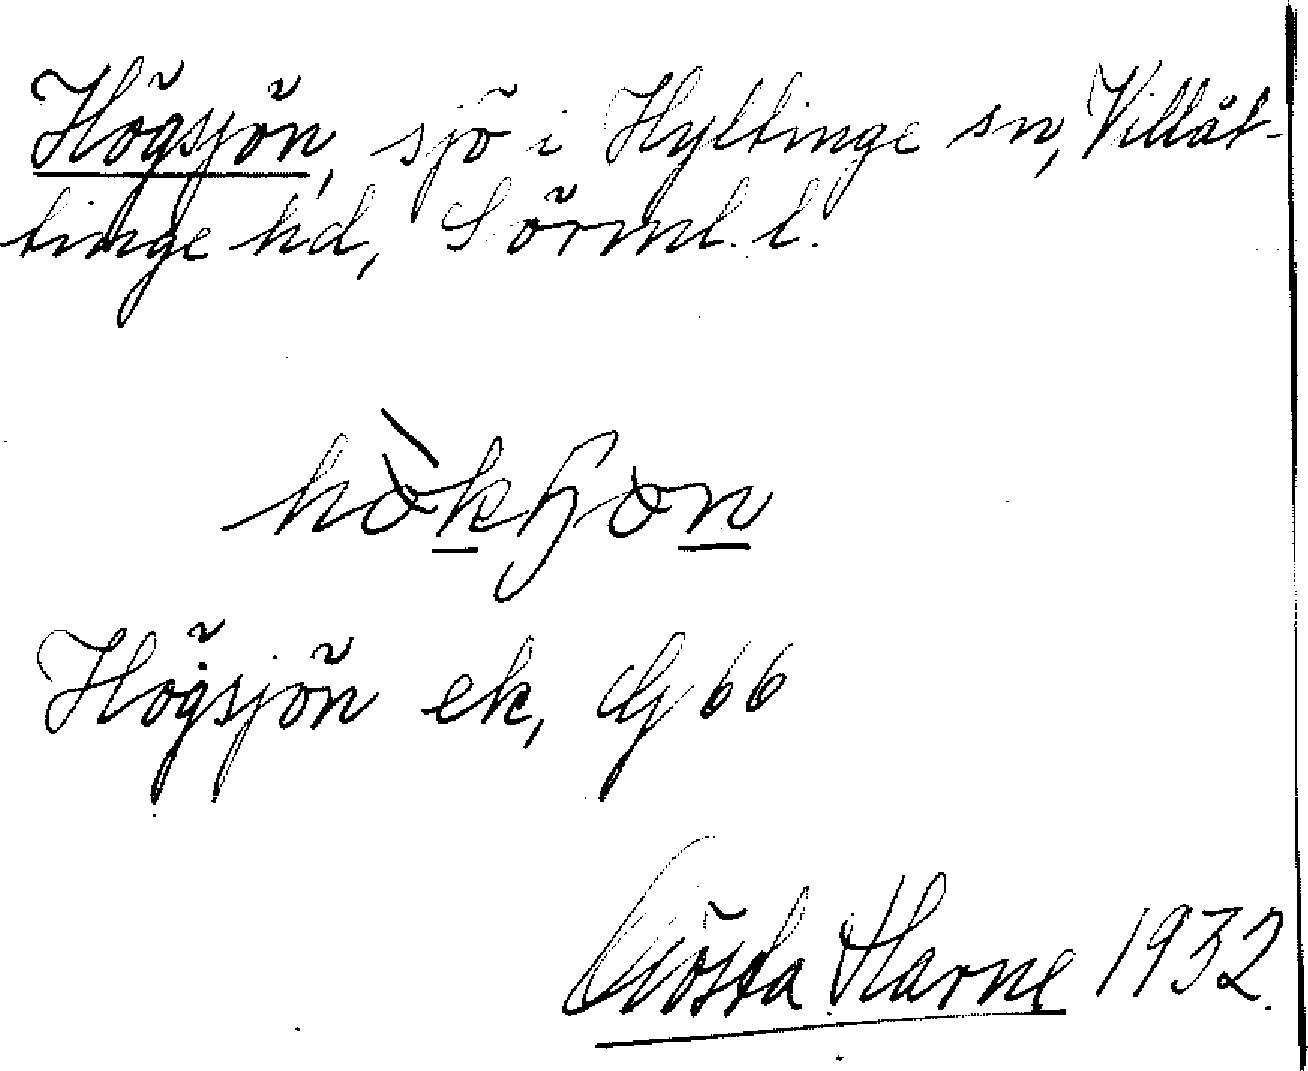 Högsjön, sjö i Hyltinge sn, Villåt-
tinge hd, Sörml. l.
Högsjön ek, G 66
Gösta Harne 1932.